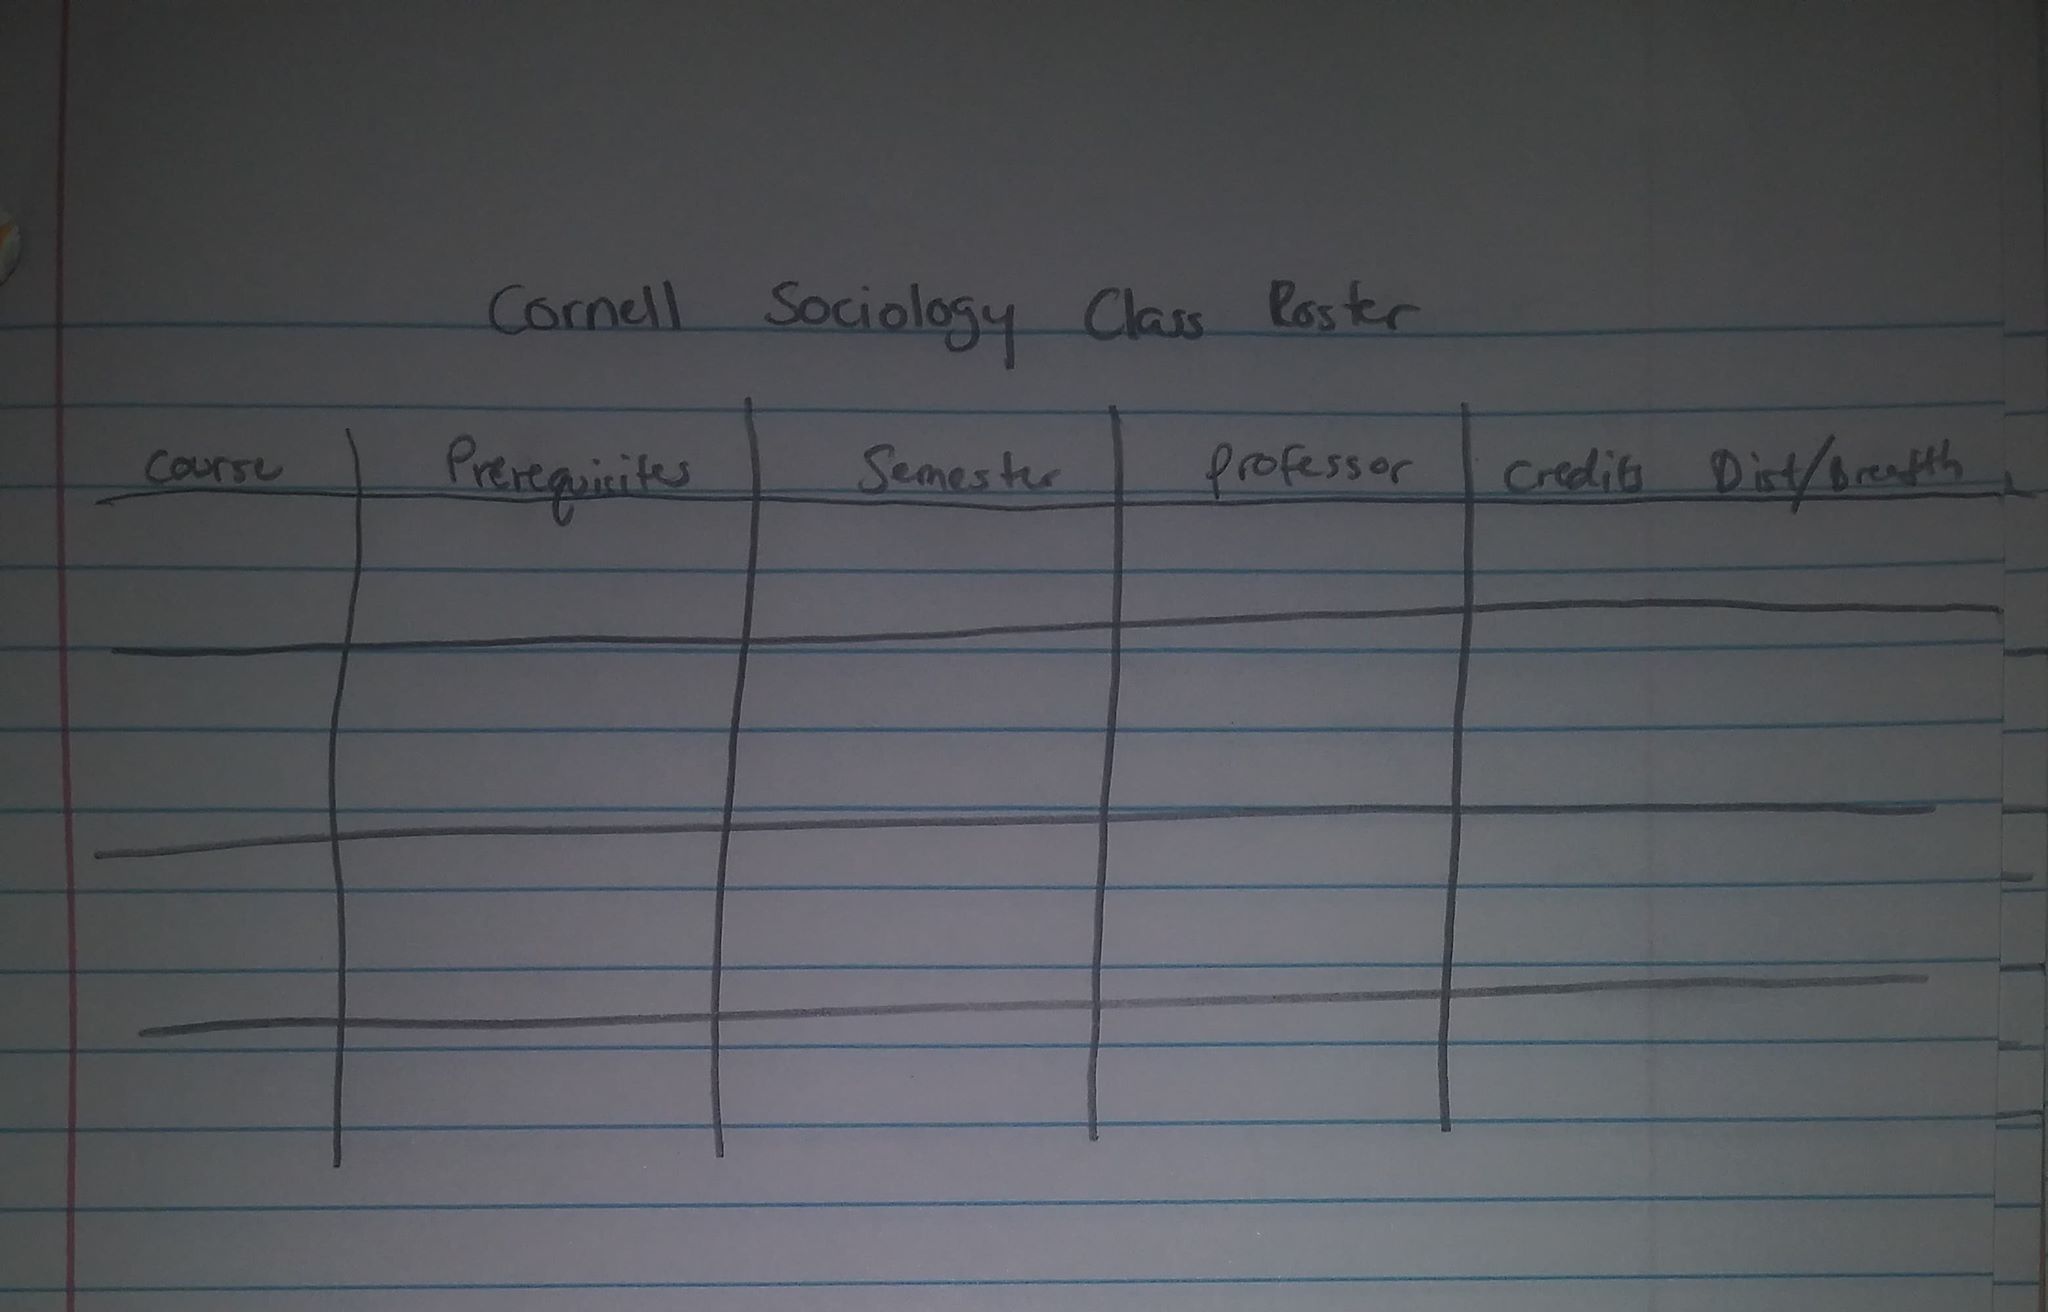 Cornell Sociology Class Roster
Course Prerequisites Semester Professor Credits Dist/Breadth